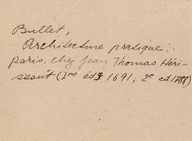 Bullet,
Architecture pratique.
Paris, chez Jean Thomas Héri-
ssant (1re éd. 1691, 2e éd.